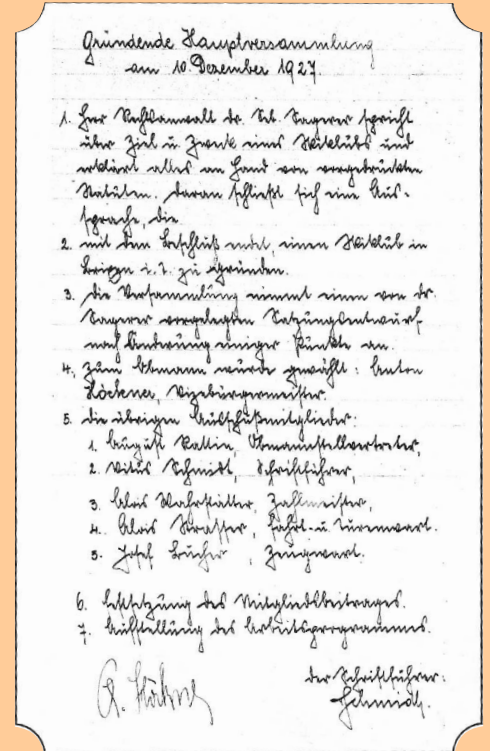 Gründende Hauptversammlung
am 10. Dezember 1927.
1. Herr Rechtsanwalt Dr. Seb. Sagerer spricht
über Ziel u. Zweck eines Skiklubs und
erklärt alles an Hand von vorgedruckten
Statuten. Daran schließt sich eine Aus-
sprache, die
2. mit dem Beschluß endet, einen Skiklub in
Brixen i. T. zu gründen.
3. Die Versammlung nimmt einen von Dr.
Sagerer vorgelegten Satzungsentwurf
nach Änderung einiger Punkte an.
4. Zum Obmann wurde gewählt: Anton
Höckner, Vizebürgermeister.
5. Die übrigen Ausschußmitglieder:
1. August Kattin, Obmannstellvertreter,
2. Vitus Schmidt, Schriftführer,
3. Alois Wahrstätter, Zahlmeister,
4. Alois Strasser, Fahrt- u. Turenwart.
5. Josef Bucher, Zeugwart.
6. Festsetzung des Mitgliedsbeitrages.
7. Aufstellung des Arbeitsprogrammes.
der Schriftführer:
Schmidt.